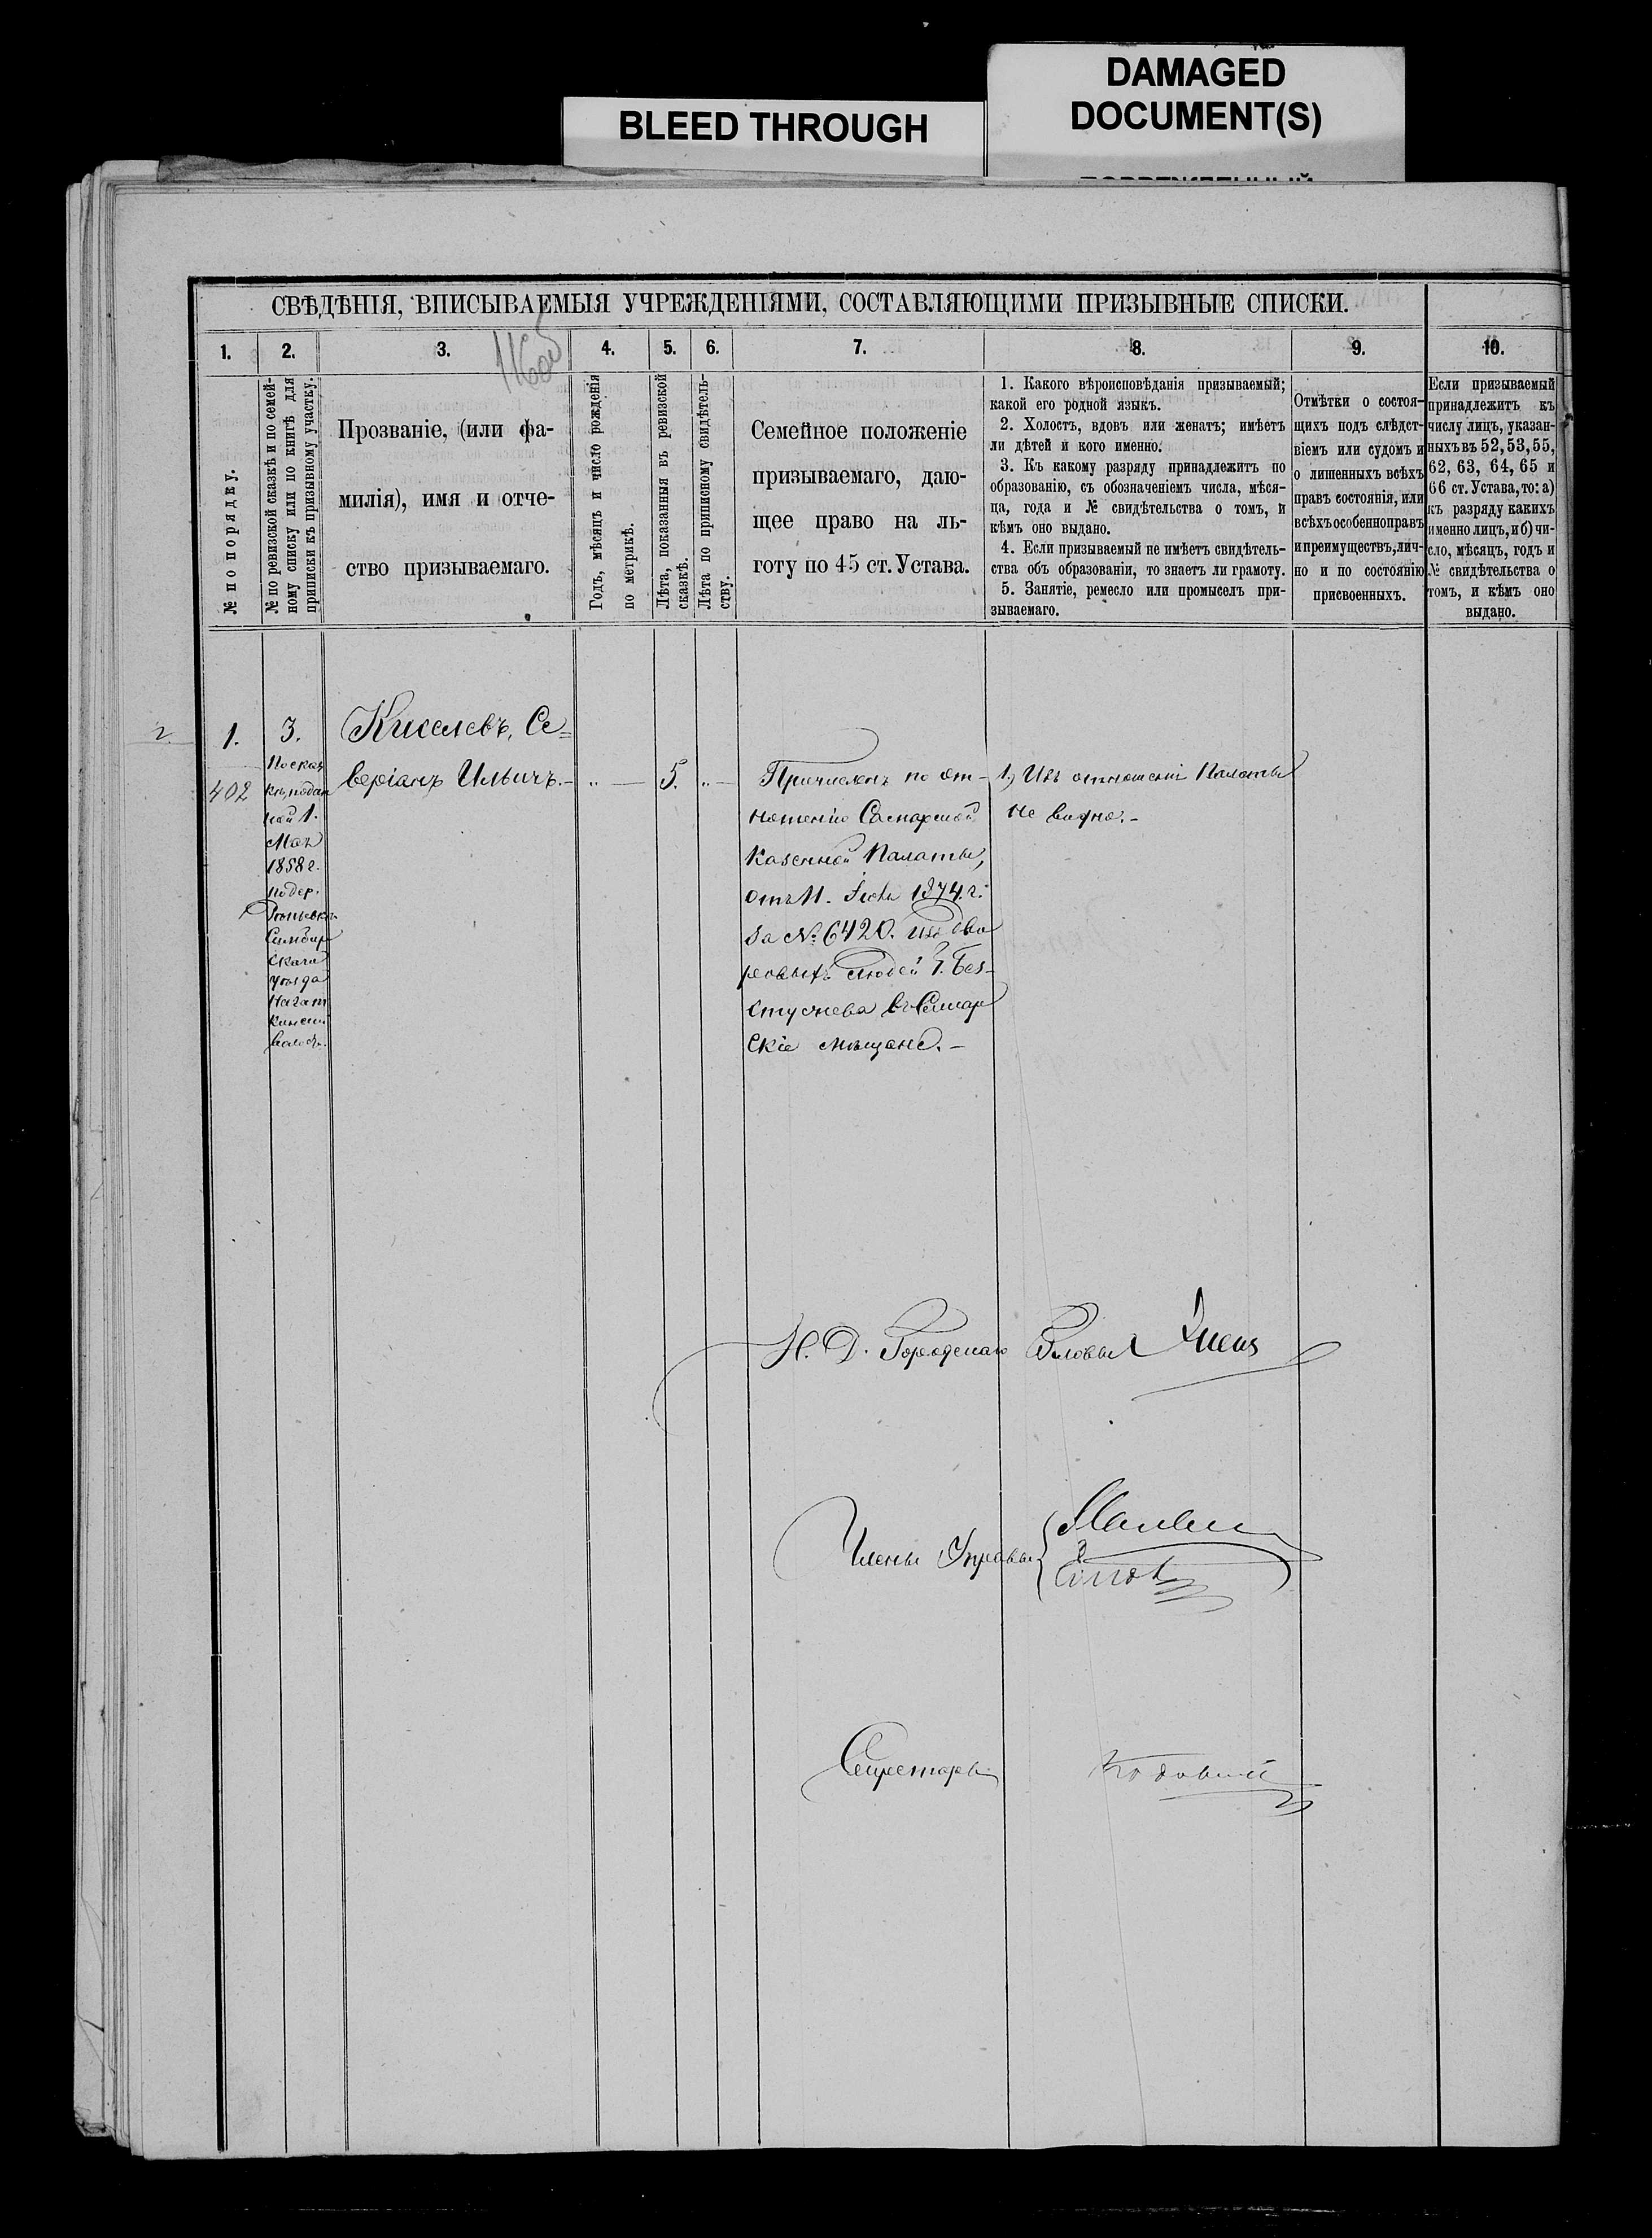 DAMAGED
DOCUMENT(S)
BLEED THROUGH
СВѢДѢНІЯ, ВПИСЫВАЕМЫЯ УЧРЕЖДЕНІЯМИ, СОСТАВЛЯЮЩИМИ ПРИЗЫВНЫЕ СПИСКИ.
1.
2.
3.
4.
5.
6.
7.
8.
9.
10.
№ по порядку.
№ по ревизской сказкѣ и по семей-
ному списку или по книгѣ для
приписки къ призывному участку.
Прозваніе, (или фа-
милія), имя и отче-
ство призываемаго.
Годъ, мѣсяцъ и число рожденія
по метрикѣ.
Лѣта, показанныя въ ревизской
сказкѣ.
Лѣта по приписному свидѣтель-
ству.
Семейное положеніе
призываемаго, даю-
щее право на ль-
готу по 45 ст. Устава.
1. Какого вѣроисповѣданія призываемый;
какой его родной языкъ.
2. Холостъ, вдовъ или женатъ; имѣетъ
ли дѣтей и кого именно.
3. Къ какому разряду принадлежитъ по
образованію, съ обозначеніемъ числа, мѣся-
ца, года и № свидѣтельства о томъ, и
кѣмъ оно выдано.
4. Если призываемый не имѣетъ свидѣтель-
ства объ образованіи, то знаетъ ли грамоту.
5. Занятіе, ремесло или промыселъ при-
зываемаго.
Отмѣтки о состоя-
щихъ подъ слѣдст-
віемъ или судомъ и
о лишенныхъ всѣхъ
правъ состоянія, или
всѣхъ особенно правъ
и преимуществъ, лич-
но и по состоянію
присвоенныхъ.
Если призываемый
принадлежитъ къ
числу лицъ, указан-
ныхъ въ 52, 53, 55,
62, 63, 64, 65 и
66 ст. Устава, то: а)
къ разряду какихъ
именно лицъ, и б) чи-
сло, мѣсяцъ, годъ и
№ свидѣтельства о
томъ, и кѣмъ оно
выдано.
2.
1.
402
3.
По сказ
кѣ, подан
ной 1.
Мая
1858 г.
по дер.
Симбир
скаго
уѣзда
волости.
Киселевъ, Се=
веріанъ Ильичъ.-
5.
Причисленъ по от-
ношенію Самарской
Казенной Палаты,
отъ 11. 1874 г.
за № 6420. изъ дво
ровыхъ людей Г. Без-
стужева въ Самар
скіе мѣщане.-
1.) Изъ отношенія Палаты
не видно.-
И. Д. Городскаго Головы
Члены Управы
Секретарь